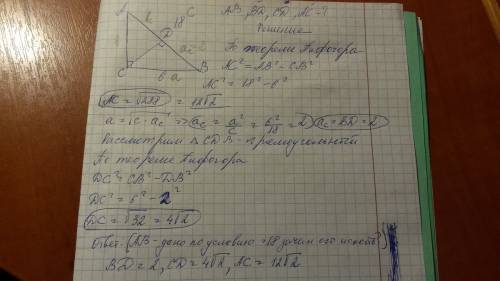 A
b
18
C
D
ac
C
6 a
B
AB, BD, CD, AC - ?
Решение
По теореме Пифагора
AC² = AB² - CB²
AC² = 18² - 6²
AC = √288 = 12√2
a² = c · ac => ac = a²/c = 6²/18 = 2 ac = BD = 2
Рассмотрим △ CDB - прямоугольный
По теореме Пифагора
DC² = CB² - DB²
DC² = 6² - 2²
DC = √32 = 4√2
Ответ: (AB - дано по условию = 18 зачем его искать)
BD = 2, CD = 4√2, AC = 12√2